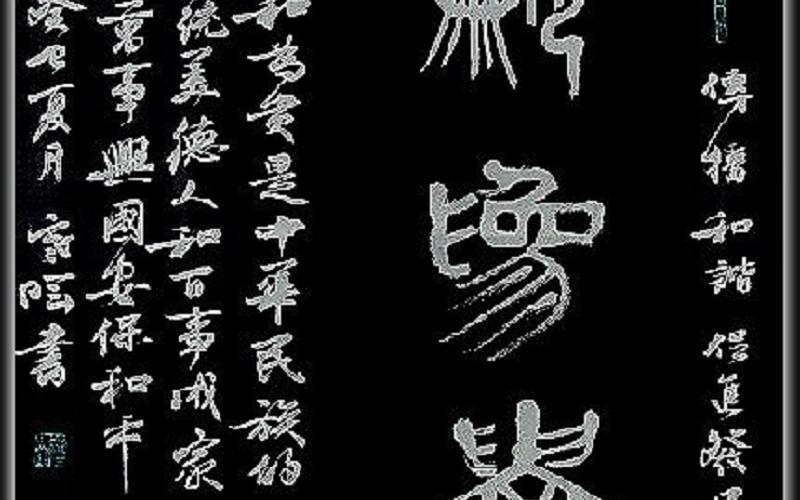 傳播和諧 促進發
為
和為貴是中華民族的
統美德人和百事成家
萬事興國安保和平
癸巳夏月 書